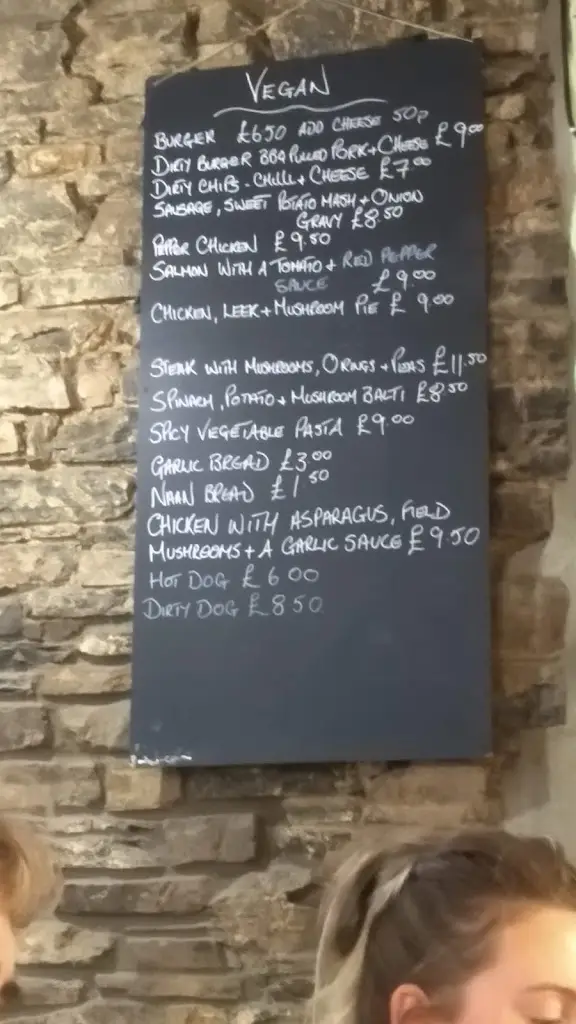 VEGAN
BURGER £6.50 ADD CHEESE 50p
DIRTY BURGER BBQ PULLED PORK + CHEESE £9.00
DIRTY CHIPS - CHILLI + CHEESE £7.00
SAUSAGE, SWEET POTATO MASH + ONION
GRAVY £8.50
PEPPER CHICKEN £9.50
SALMON WITH A TOMATO + RED PEPPER
SAUCE £9.00
CHICKEN, LEEK + MUSHROOM PIE £9.00
STEAK WITH MUSHROOMS, O RINGS + PEAS £11.50
SPINACH, POTATO + MUSHROOM BALTI £8.50
SPICY VEGETABLE PASTA £9.00
GARLIC BREAD £3.00
NAAN BREAD £1.50
CHICKEN WITH ASPARAGUS, FIELD
MUSHROOMS + A GARLIC SAUCE £9.50
HOT DOG £6.00
DIRTY DOG £8.50